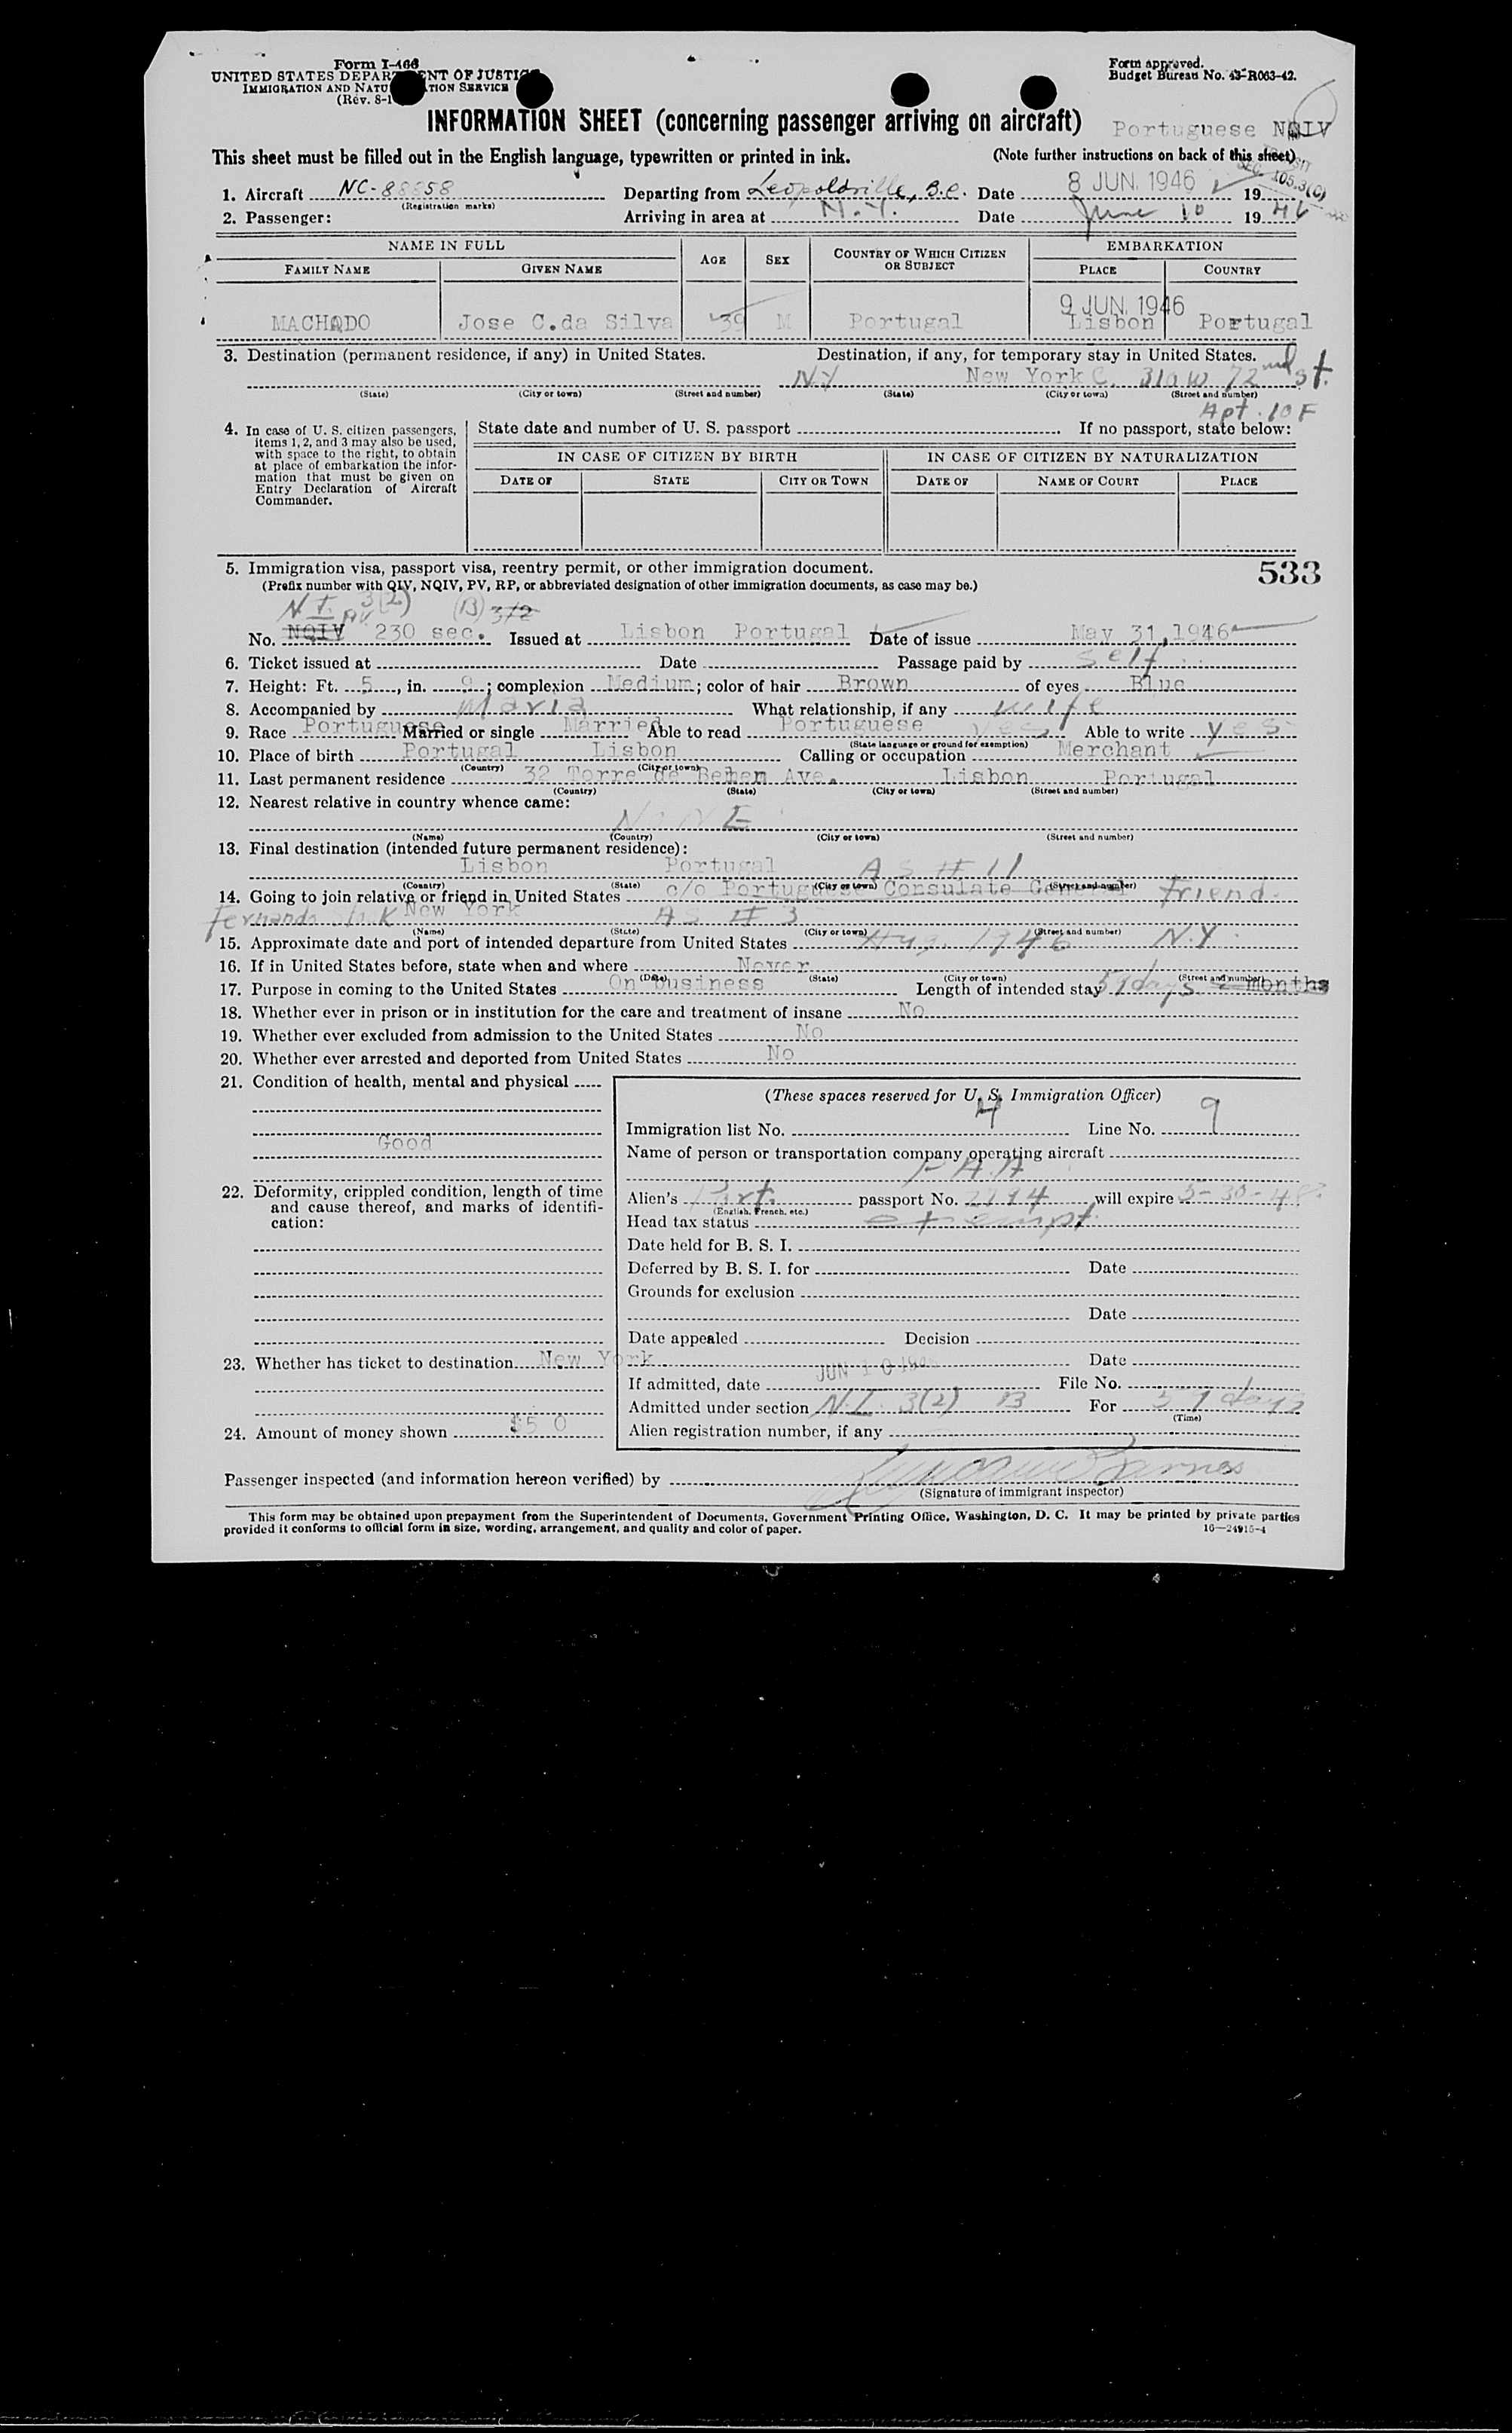 Form I-466
UNITED STATES DEPARTMENT OF JUSTICE
IMMIGRATION AND NATURALIZATION SERVICE
(Rev. 8-1
Form approved.
Budget Bureau No. 43-R063-42.
INFORMATION SHEET (concerning passenger arriving on aircraft)
Portuguese NQIV
This sheet must be filled out in the English language, typewritten or printed in ink. (Note further instructions on back of this sheet)
TRANSIT SEC. 105.3(C)
1. Aircraft NC-88858 Departing from Leopoldville, B.C. Date 8 JUN. 1946 19
(Registration marks)
2. Passenger: Arriving in area at N.Y. Date June 10 1946
NAME IN FULL AGE SEX COUNTRY OF WHICH CITIZEN OR SUBJECT EMBARKATION
FAMILY NAME GIVEN NAME PLACE COUNTRY
9 JUN. 1946
MACHADO Jose C.da Silva 39 M Portugal Lisbon Portugal
3. Destination (permanent residence, if any) in United States. Destination, if any, for temporary stay in United States.
N.Y New York C. 310 W 72nd St.
(State) (City or town) (Street and number) (State) (City or town) (Street and number)
Apt. 10F
4. In case of U. S. citizen passengers, items 1, 2, and 3 may also be used, with space to the right, to obtain at place of embarkation the information that must be given on Entry Declaration of Aircraft Commander.
State date and number of U. S. passport If no passport, state below:
IN CASE OF CITIZEN BY BIRTH IN CASE OF CITIZEN BY NATURALIZATION
DATE OF STATE CITY OR TOWN DATE OF NAME OF COURT PLACE
5. Immigration visa, passport visa, reentry permit, or other immigration document. 533
(Prefix number with QIV, NQIV, PV, RP, or abbreviated designation of other immigration documents, as case may be.)
N.I. PV 3(2) (B) 372
No. NQIV 230 sec. Issued at Lisbon Portugal Date of issue May 31, 1946
6. Ticket issued at Date Passage paid by self
7. Height: Ft. 5, in. 9; complexion Medium; color of hair Brown of eyes Blue
8. Accompanied by Maria What relationship, if any wife
9. Race Portuguese Married or single Married Able to read Portuguese yes Able to write yes
(State language or ground for exemption)
10. Place of birth Portugal Lisbon Calling or occupation Merchant
(Country) (City or town)
11. Last permanent residence 32 Torre de Belem Ave. Lisbon Portugal
(Country) (State) (City or town) (Street and number)
12. Nearest relative in country whence came:
NONE
(Name) (Country) (City or town) (Street and number)
13. Final destination (intended future permanent residence):
Lisbon Portugal AS # 11
(Country) (State) (City or town) (Street and number)
14. Going to join relative or friend in United States c/o Portuguese Consulate General friend
New York AS # 3
(Name) (State) (City or town) (Street and number)
15. Approximate date and port of intended departure from United States Aug. 1946 N.Y.
16. If in United States before, state when and where Never
(Date) (State) (City or town) (Street and number)
17. Purpose in coming to the United States On business Length of intended stay 59 days 2 Months
18. Whether ever in prison or in institution for the care and treatment of insane No
19. Whether ever excluded from admission to the United States No
20. Whether ever arrested and deported from United States No
21. Condition of health, mental and physical
Good
22. Deformity, crippled condition, length of time and cause thereof, and marks of identification:
23. Whether has ticket to destination New York
24. Amount of money shown $50
(These spaces reserved for U. S. Immigration Officer)
Immigration list No. 4 Line No. 9
Name of person or transportation company operating aircraft
PAA
Alien's Port. passport No. 2294 will expire 5-30-48
(English, French, etc.)
Head tax status exempt
Date held for B. S. I.
Deferred by B. S. I. for Date
Grounds for exclusion
Date
Date appealed Decision
Date
If admitted, date JUN 10 1946 File No.
Admitted under section N.I. 3(2) B For 59 days
(Time)
Alien registration number, if any
Passenger inspected (and information hereon verified) by
(Signature of immigrant inspector)
This form may be obtained upon prepayment from the Superintendent of Documents, Government Printing Office, Washington, D. C. It may be printed by private parties
provided it conforms to official form in size, wording, arrangement, and quality and color of paper. 16—24915-4